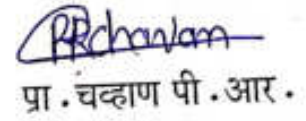 PRchavan
प्रा . चव्हाण पी . आर .